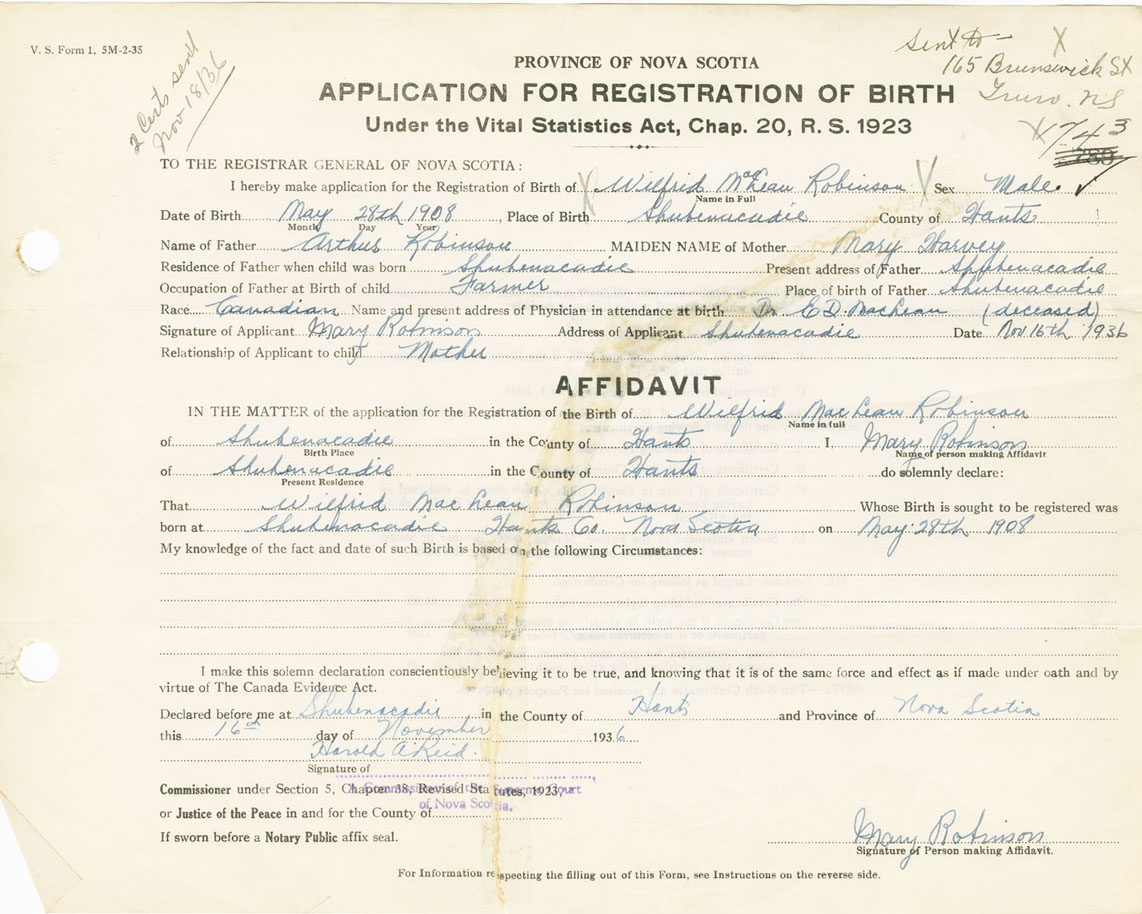 V. S. Form 1. 5M-2-35
2 Certs sent
Nov-18/36
Sent to -
165 Brunswick St
Truro. NS
PROVINCE OF NOVA SCOTIA
APPLICATION FOR REGISTRATION OF BIRTH
Under the Vital Statistics Act, Chap. 20, R. S. 1923
743
TO THE REGISTRAR GENERAL OF NOVA SCOTIA:
I hereby make application for the Registration of Birth of Wilfrid MacLean Robinson Sex Male.
Name in Full
Date of Birth May 28th 1908, Place of Birth Shubenacadie County of Hants
Month Day Year
Name of Father Arthur Robinson MAIDEN NAME of Mother Mary Harvey
Residence of Father when child was born Shubenacadie Present address of Father Shubenacadie
Occupation of Father at Birth of child Farmer Place of birth of Father Shubenacadie
Race Canadian Name and present address of Physician in attendance at birth Dr E.D. MacLean (deceased)
Signature of Applicant Mary Robinson Address of Applicant Shubenacadie Date Nov 16th 1936
Relationship of Applicant to child Mother
AFFIDAVIT
IN THE MATTER of the application for the Registration of the Birth of Wilfrid MacLean Robinson
Name in full
of Shubenacadie in the County of Hants I, Mary Robinson
Birth Place Name of person making Affidavit
of Shubenacadie in the County of Hants do solemnly declare:
Present Residence
That Wilfrid MacLean Robinson Whose Birth is sought to be registered was
born at Shubenacadie Hants Co. Nova Scotia on May 28th 1908
My knowledge of the fact and date of such Birth is based on the following Circumstances:
I make this solemn declaration conscientiously believing it to be true, and knowing that it is of the same force and effect as if made under oath and by
virtue of The Canada Evidence Act.
Declared before me at Shubenacadie in the County of Hants and Province of Nova Scotia
this 16th day of November 1936
Harold A Reid.
Signature of
Commissioner under Section 5, Chapter 38, Revised Statutes, 1923,
A Commissioner of the Supreme Court
of Nova Scotia.
or Justice of the Peace in and for the County of
If sworn before a Notary Public affix seal.
Mary Robinson
Signature of Person making Affidavit.
For Information respecting the filling out of this Form, see Instructions on the reverse side.